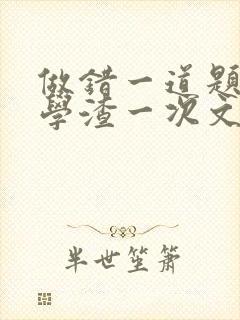 做錯一道題
學渣一次文
半世笙簫